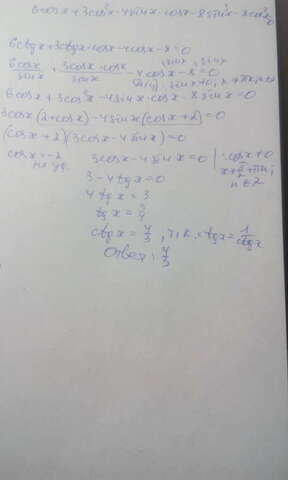 6cosx+3cos²x-4sinx·cosx-8sin²x-8cos²x=0
6ctgx+3ctgx·cosx-4cosx-8=0
6cosx/sinx + 3cosx·cosx/sinx - 4cosx-8=0 |·sinx, sinx≠0, x≠πn, n∈Z
6cosx+3cos²x-4sinx·cosx-8sinx=0
3cosx(2+cosx)-4sinx(cosx+2)=0
(cosx+2)(3cosx-4sinx)=0
cosx=-2 3cosx-4sinx=0 |:cosx≠0
не уд. x≠π/2+πn, n∈Z
3-4tgx=0
4tgx=3
tgx=3/4
ctgx=4/3, т.к. tgx=1/ctgx
Ответ: 4/3